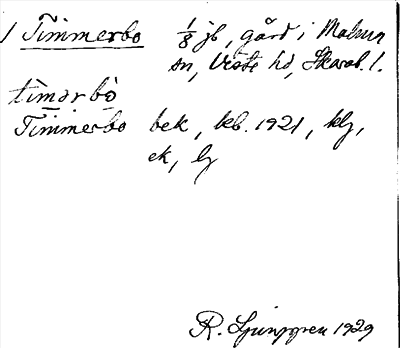 1 Timmerbo 1/8 jb, gård i Malma
sn, Viste hd, Skarab. l.
timərbò
Timmerbo bek, kb. 1921, hlj,
ek, lj
R. Ljunggren 1929